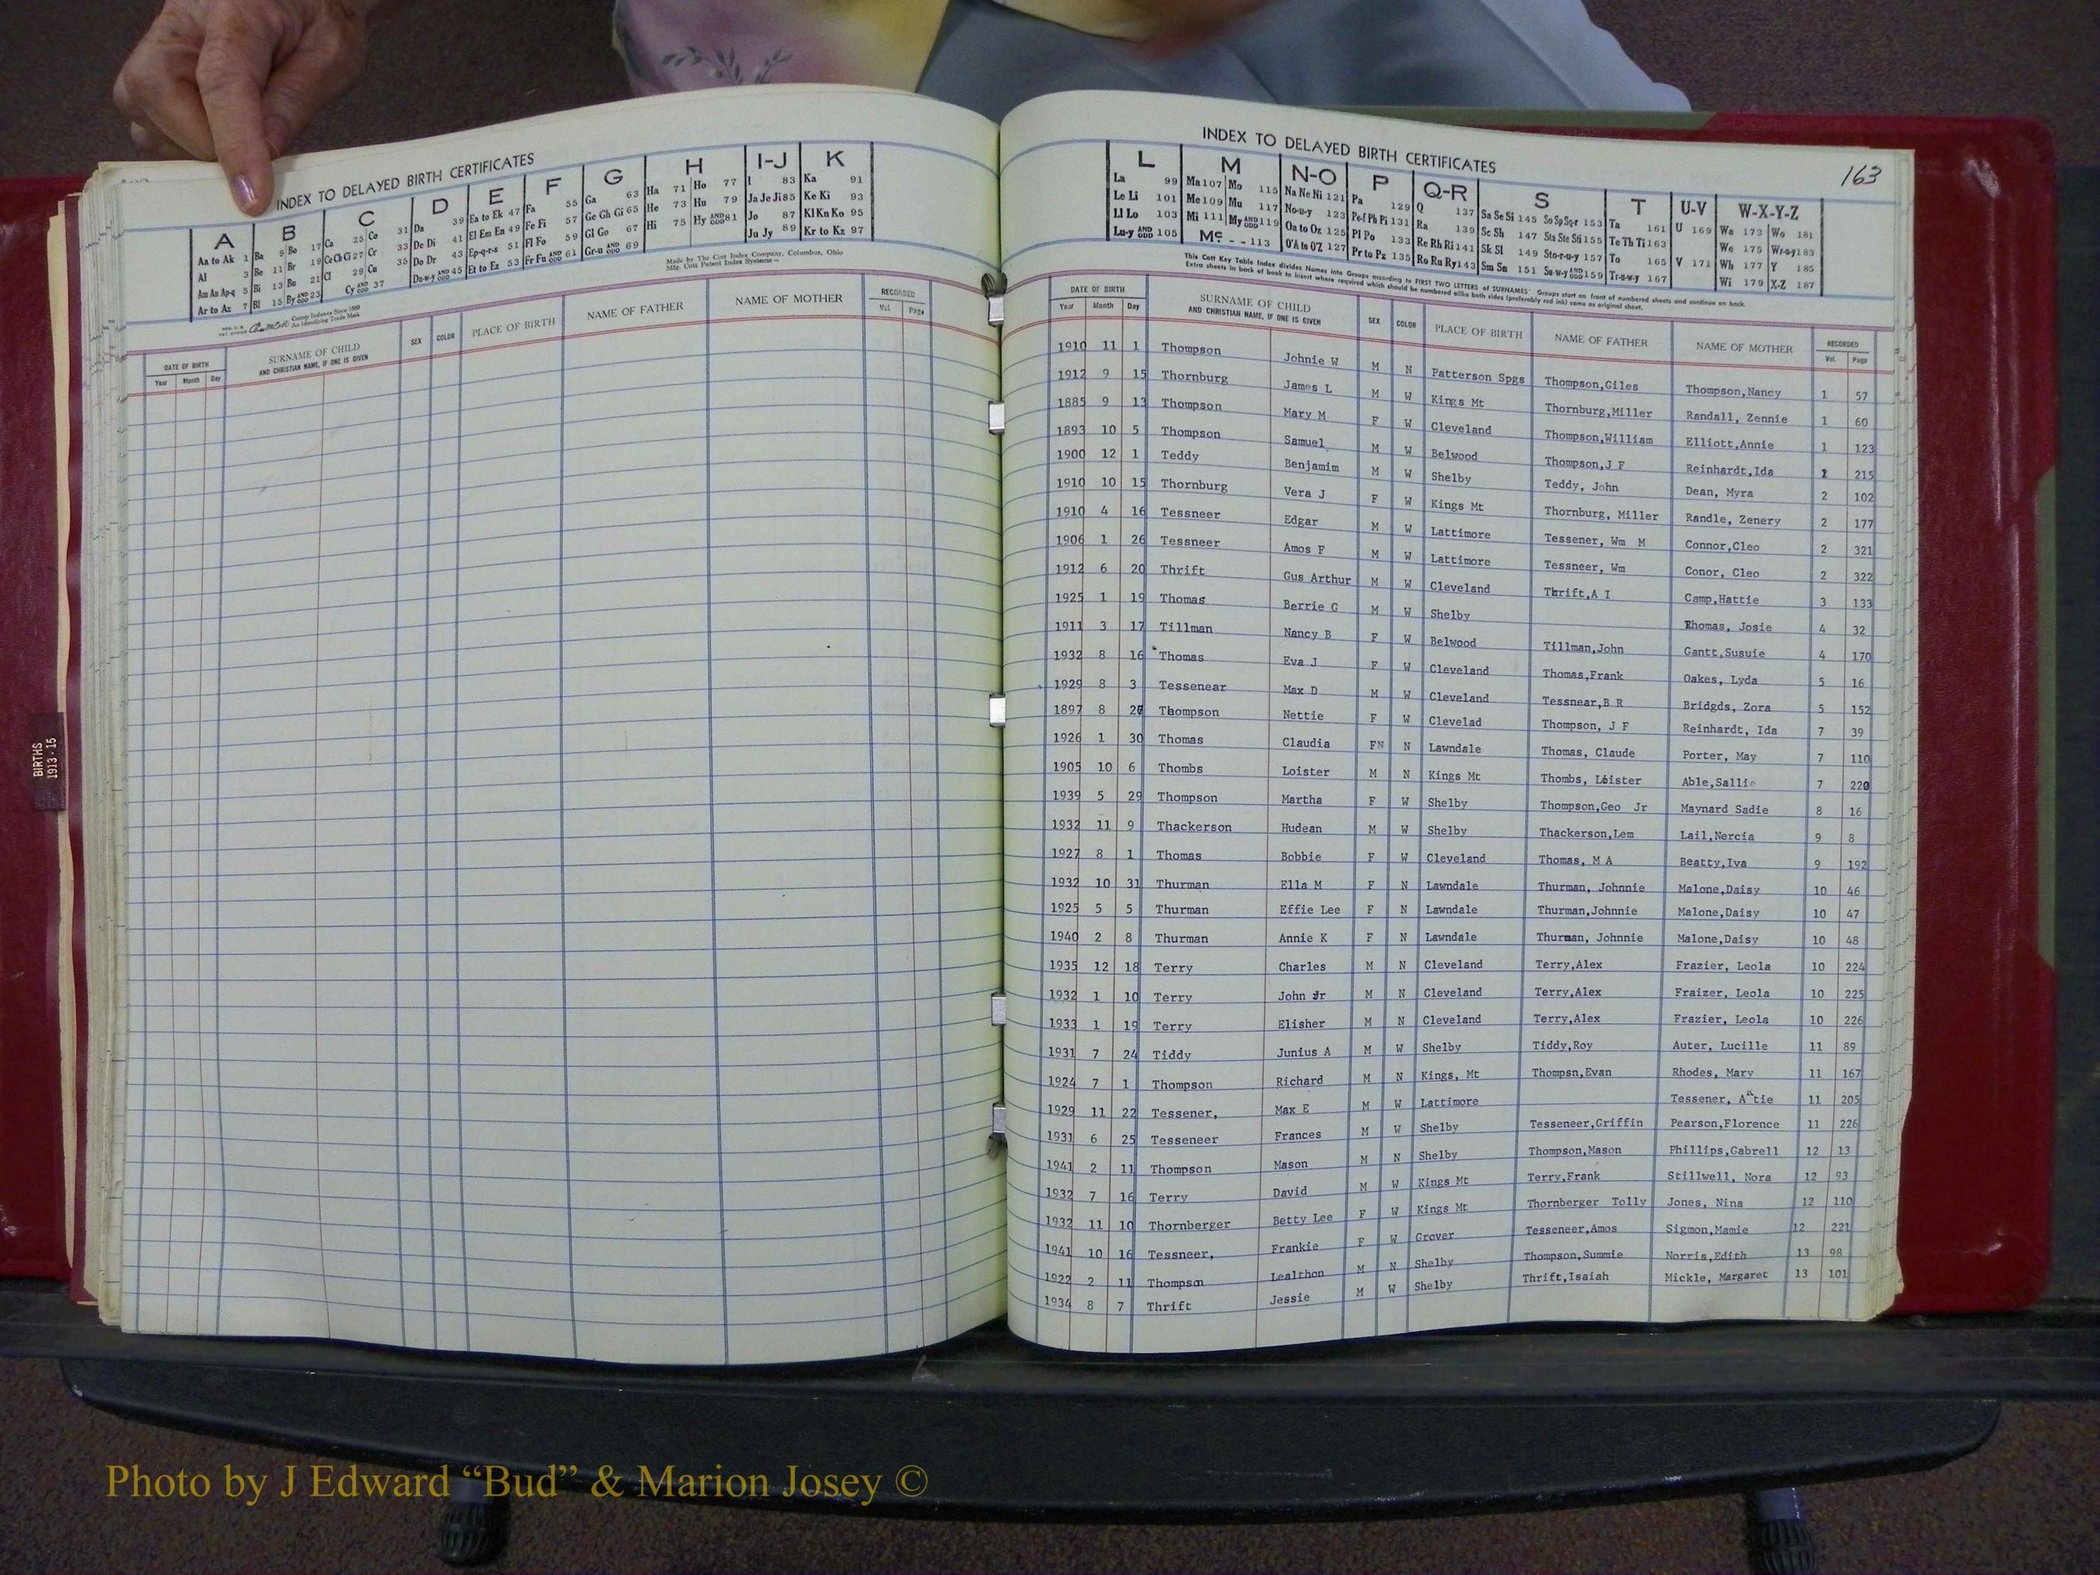 INDEX TO DELAYED BIRTH CERTIFICATES
A B C D E F G H I-J K
Aa to Ak 1 Ba 9 Bo 17 Ca 25 Co 31 Da 39 Ea to Ek 47 Fa 55 Ga 63 Ha 71 Ho 77 I 83 Ka 91
Al 3 Be 11 Br 19 Ce Ch Ci 27 Cr 33 De Di 41 El Em En 49 Fe Fi 57 Ge Gh Gi 65 He 73 Hu 79 Ja Je Ji 85 Ke Ki 93
Am An Ap-q 5 Bi 13 Bu 21 Cl 29 Cu 35 Do Dr 43 Ep-q-r-s 51 Fl Fo 59 Gl Go 67 Hi 75 Hy AND ODD 81 Jo 87 Kl Kn Ko 95
Ar to Az 7 Bl 15 By AND ODD 23 Cy AND ODD 37 Du-w-y AND ODD 45 Et to Ez 53 Fr Fu AND ODD 61 Gr-u AND ODD 69 Ju Jy 89 Kr to Kz 97
County Indexes Since 1888
An Identifying Trade Mark
Made by The Cott Index Company, Columbus, Ohio
Mfg. Cott Patent Index Systems
DATE OF BIRTH SURNAME OF CHILD SEX COLOR PLACE OF BIRTH NAME OF FATHER NAME OF MOTHER RECORDED
Year Month Day AND CHRISTIAN NAME, IF ONE IS GIVEN Vol. Page
BIRTHS
1913 - 15
INDEX TO DELAYED BIRTH CERTIFICATES
163
L M N-O P Q-R S T U-V W-X-Y-Z
La 99 Ma 107 Mo 115 Na Ne Ni 121 Pa 129 Q 137 Sa Se Si 145 So Sp Sq-r 153 Ta 161 U 169 Wa 173 Wo 181
Le Li 101 Me 109 Mu 117 No-u-y 123 Pe-f Ph Pi 131 Ra 139 Sc Sh 147 Sta Ste Sti 155 Te Th Ti 163 We 175 Wr-u-y 183
Ll Lo 103 Mi 111 My AND ODD 119 Oa to Oz 125 Pl Po 133 Re Rh Ri 141 Sk Sl 149 Sto-r-u-y 157 To 165 V 171 Wh 177 Y 185
Lu-y AND ODD 105 Mc - - 113 O'A to O'Z 127 Pr to Pz 135 Ro Ru Ry 143 Sm Sn 151 Su-w-y AND ODD 159 Tr-u-w-y 167 Wi 179 X-Z 187
This Cott Key Table Index divides Names into Groups according to FIRST TWO LETTERS of SURNAMES. Groups start on front of numbered sheets and continue on back.
Extra sheets in back of book to insert where required which should be numbered alike both sides (preferably red ink) same as original sheet.
DATE OF BIRTH SURNAME OF CHILD SEX COLOR PLACE OF BIRTH NAME OF FATHER NAME OF MOTHER RECORDED
Year Month Day AND CHRISTIAN NAME, IF ONE IS GIVEN Vol. Page
1910 11 1 Thompson Johnie W M N Patterson Spgs Thompson,Giles Thompson,Nancy 1 57
1912 9 15 Thornburg James L M W Kings Mt Thornburg,Miller Randall, Zennie 1 60
1885 9 13 Thompson Mary M F W Cleveland Thompson,William Elliott,Annie 1 123
1893 10 5 Thompson Samuel M W Belwood Thompson,J F Reinhardt,Ida 215
1900 12 1 Teddy Benjamim M W Shelby Teddy, John Dean, Myra 2 102
1910 10 15 Thornburg Vera J F W Kings Mt Thornburg, Miller Randle, Zenery 2 177
1910 4 16 Tessneer Edgar M W Lattimore Tessener, Wm M Connor,Cleo 2 321
1906 1 26 Tessneer Amos F M W Lattimore Tessneer, Wm Conor, Cleo 2 322
1912 6 20 Thrift Gus Arthur M W Cleveland Thrift,A I Camp,Hattie 3 133
1925 1 19 Thomas Berrie G M W Shelby Thomas, Josie 4 32
1911 3 17 Tillman Nancy B F W Belwood Tillman,John Gantt,Susuie 4 170
1932 8 16 Thomas Eva J F W Cleveland Thomas,Frank Oakes, Lyda 5 16
1929 8 3 Tessenear Max D M W Cleveland Tessnear,B R Bridgds, Zora 5 152
1897 8 27 Thompson Nettie F W Clevelad Thompson, J F Reinhardt, Ida 7 39
1926 1 30 Thomas Claudia FN N Lawndale Thomas, Claude Porter, May 7 110
1905 10 6 Thombs Loister M N Kings Mt Thombs, Loister Able,Sallie 7 220
1939 5 29 Thompson Martha F W Shelby Thompson,Geo Jr Maynard Sadie 8 16
1932 11 9 Thackerson Hudean M W Shelby Thackerson,Lem Lail,Nercia 9 8
1927 8 1 Thomas Bobbie F W Cleveland Thomas, M A Beatty,Iva 9 192
1932 10 31 Thurman Ella M F N Lawndale Thurman, Johnnie Malone,Daisy 10 46
1925 5 5 Thurman Effie Lee F N Lawndale Thurman,Johnnie Malone,Daisy 10 47
1940 2 8 Thurman Annie K F N Lawndale Thurman, Johnnie Malone,Daisy 10 48
1935 12 18 Terry Charles M N Cleveland Terry,Alex Frazier, Leola 10 224
1932 1 10 Terry John Jr M N Cleveland Terry,Alex Fraizer, Leola 10 225
1933 1 19 Terry Elisher M N Cleveland Terry,Alex Frazier, Leola 10 226
1931 7 24 Tiddy Junius A M W Shelby Tiddy,Roy Auter, Lucille 11 89
1924 7 1 Thompson Richard M N Kings, Mt Thompsn,Evan Rhodes, Mary 11 167
1929 11 22 Tessener, Max E M W Lattimore Tessener, Antie 11 205
1931 6 25 Tesseneer Frances M W Shelby Tesseneer,Griffin Pearson,Florence 11 226
1941 2 11 Thompson Mason M N Shelby Thompson,Mason Phillips,Gabrell 12 13
1932 7 16 Terry David M W Kings Mt Terry,Frank Stillwell, Nora 12 93
1932 11 10 Thornberger Betty Lee F W Kings Mt Thornberger Tolly Jones, Nina 12 110
1941 10 16 Tessneer, Frankie F W Grover Tesseneer,Amos Sigmon,Mamie 12 221
1922 2 11 Thompson Lealthon M N Shelby Thompson,Summie Norris,Edith 13 98
1934 8 7 Thrift Jessie M W Shelby Thrift,Isaiah Mickle, Margaret 13 101
Photo by J Edward “Bud” & Marion Josey ©